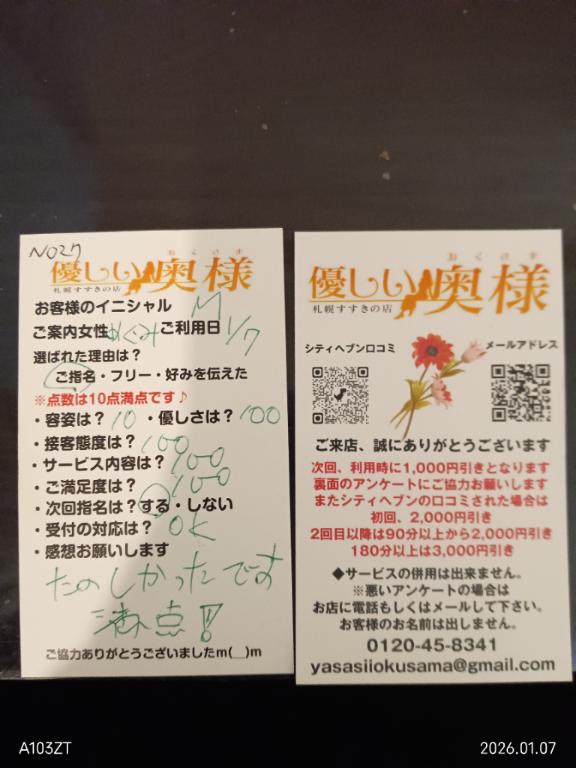 NO27
おくさま
優しい奥様
札幌すすきの店
お客様のイニシャル M
ご案内女性 めぐみ ご利用日 1/7
選ばれた理由は?
ご指名・フリー・好みを伝えた
※点数は10点満点です♪
・容姿は? 10 ・優しさは? 100
・接客態度は? 100
・サービス内容は? 100
・ご満足度は? 100
・次回指名は?する・しない
・受付の対応は? OK
・感想お願いします
たのしかったです
満点!!
ご協力ありがとうございましたm(__)m
おくさま
優しい奥様
札幌すすきの店
シティヘブン口コミ
メールアドレス
ご来店、誠にありがとうございます
次回、利用時に1,000円引きとなります
裏面のアンケートにご協力お願いします
またシティヘブンの口コミされた場合は
初回、2,000円引き
2回目以降は90分以上から2,000円引き
180分以上は3,000円引き
◆サービスの併用は出来ません。
※悪いアンケートの場合は
お店に電話もしくはメールして下さい。
お客様のお名前は出しません。
0120-45-8341
yasasiiokusama@gmail.com
A103ZT
2026.01.07